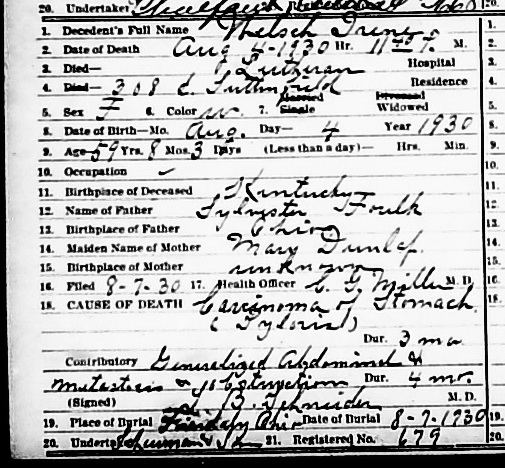 20. Undertaker
1. Decedent's Full Name Whelsch Irene
2. Date of Death Aug 4-1930 Hr. 11 40 P. M.
3. Died— Lutheran Hospital
4. Died— 308 E. Residence
5. Sex F 6. Color w. 7. Married Single Divorced Widowed
8. Date of Birth—Mo. Aug. Day— 4 Year 1930
9. Age 59 Yrs. 8 Mos. 3 Days (Less than a day)— Hrs. Min.
10. Occupation ✓
11. Birthplace of Deceased Kentucky
12. Name of Father Sylvester Foulk
13. Birthplace of Father Ohio
14. Maiden Name of Mother Mary Dunlap.
15. Birthplace of Mother unknown
16. Filed 8-7-30 17. Health Officer C. G. Miller M. D.
18. CAUSE OF DEATH Carcinoma of Stomach
(Pyloris)
Dur. 3 mo
Contributory Generalized Abdominal &
Metastosis & Obstruction Dur. 4 mo.
(Signed) B. Schneider M. D.
19. Place of Burial Date of Burial 8-7-1930
20. Undertaker & Son 21. Registered No. 679